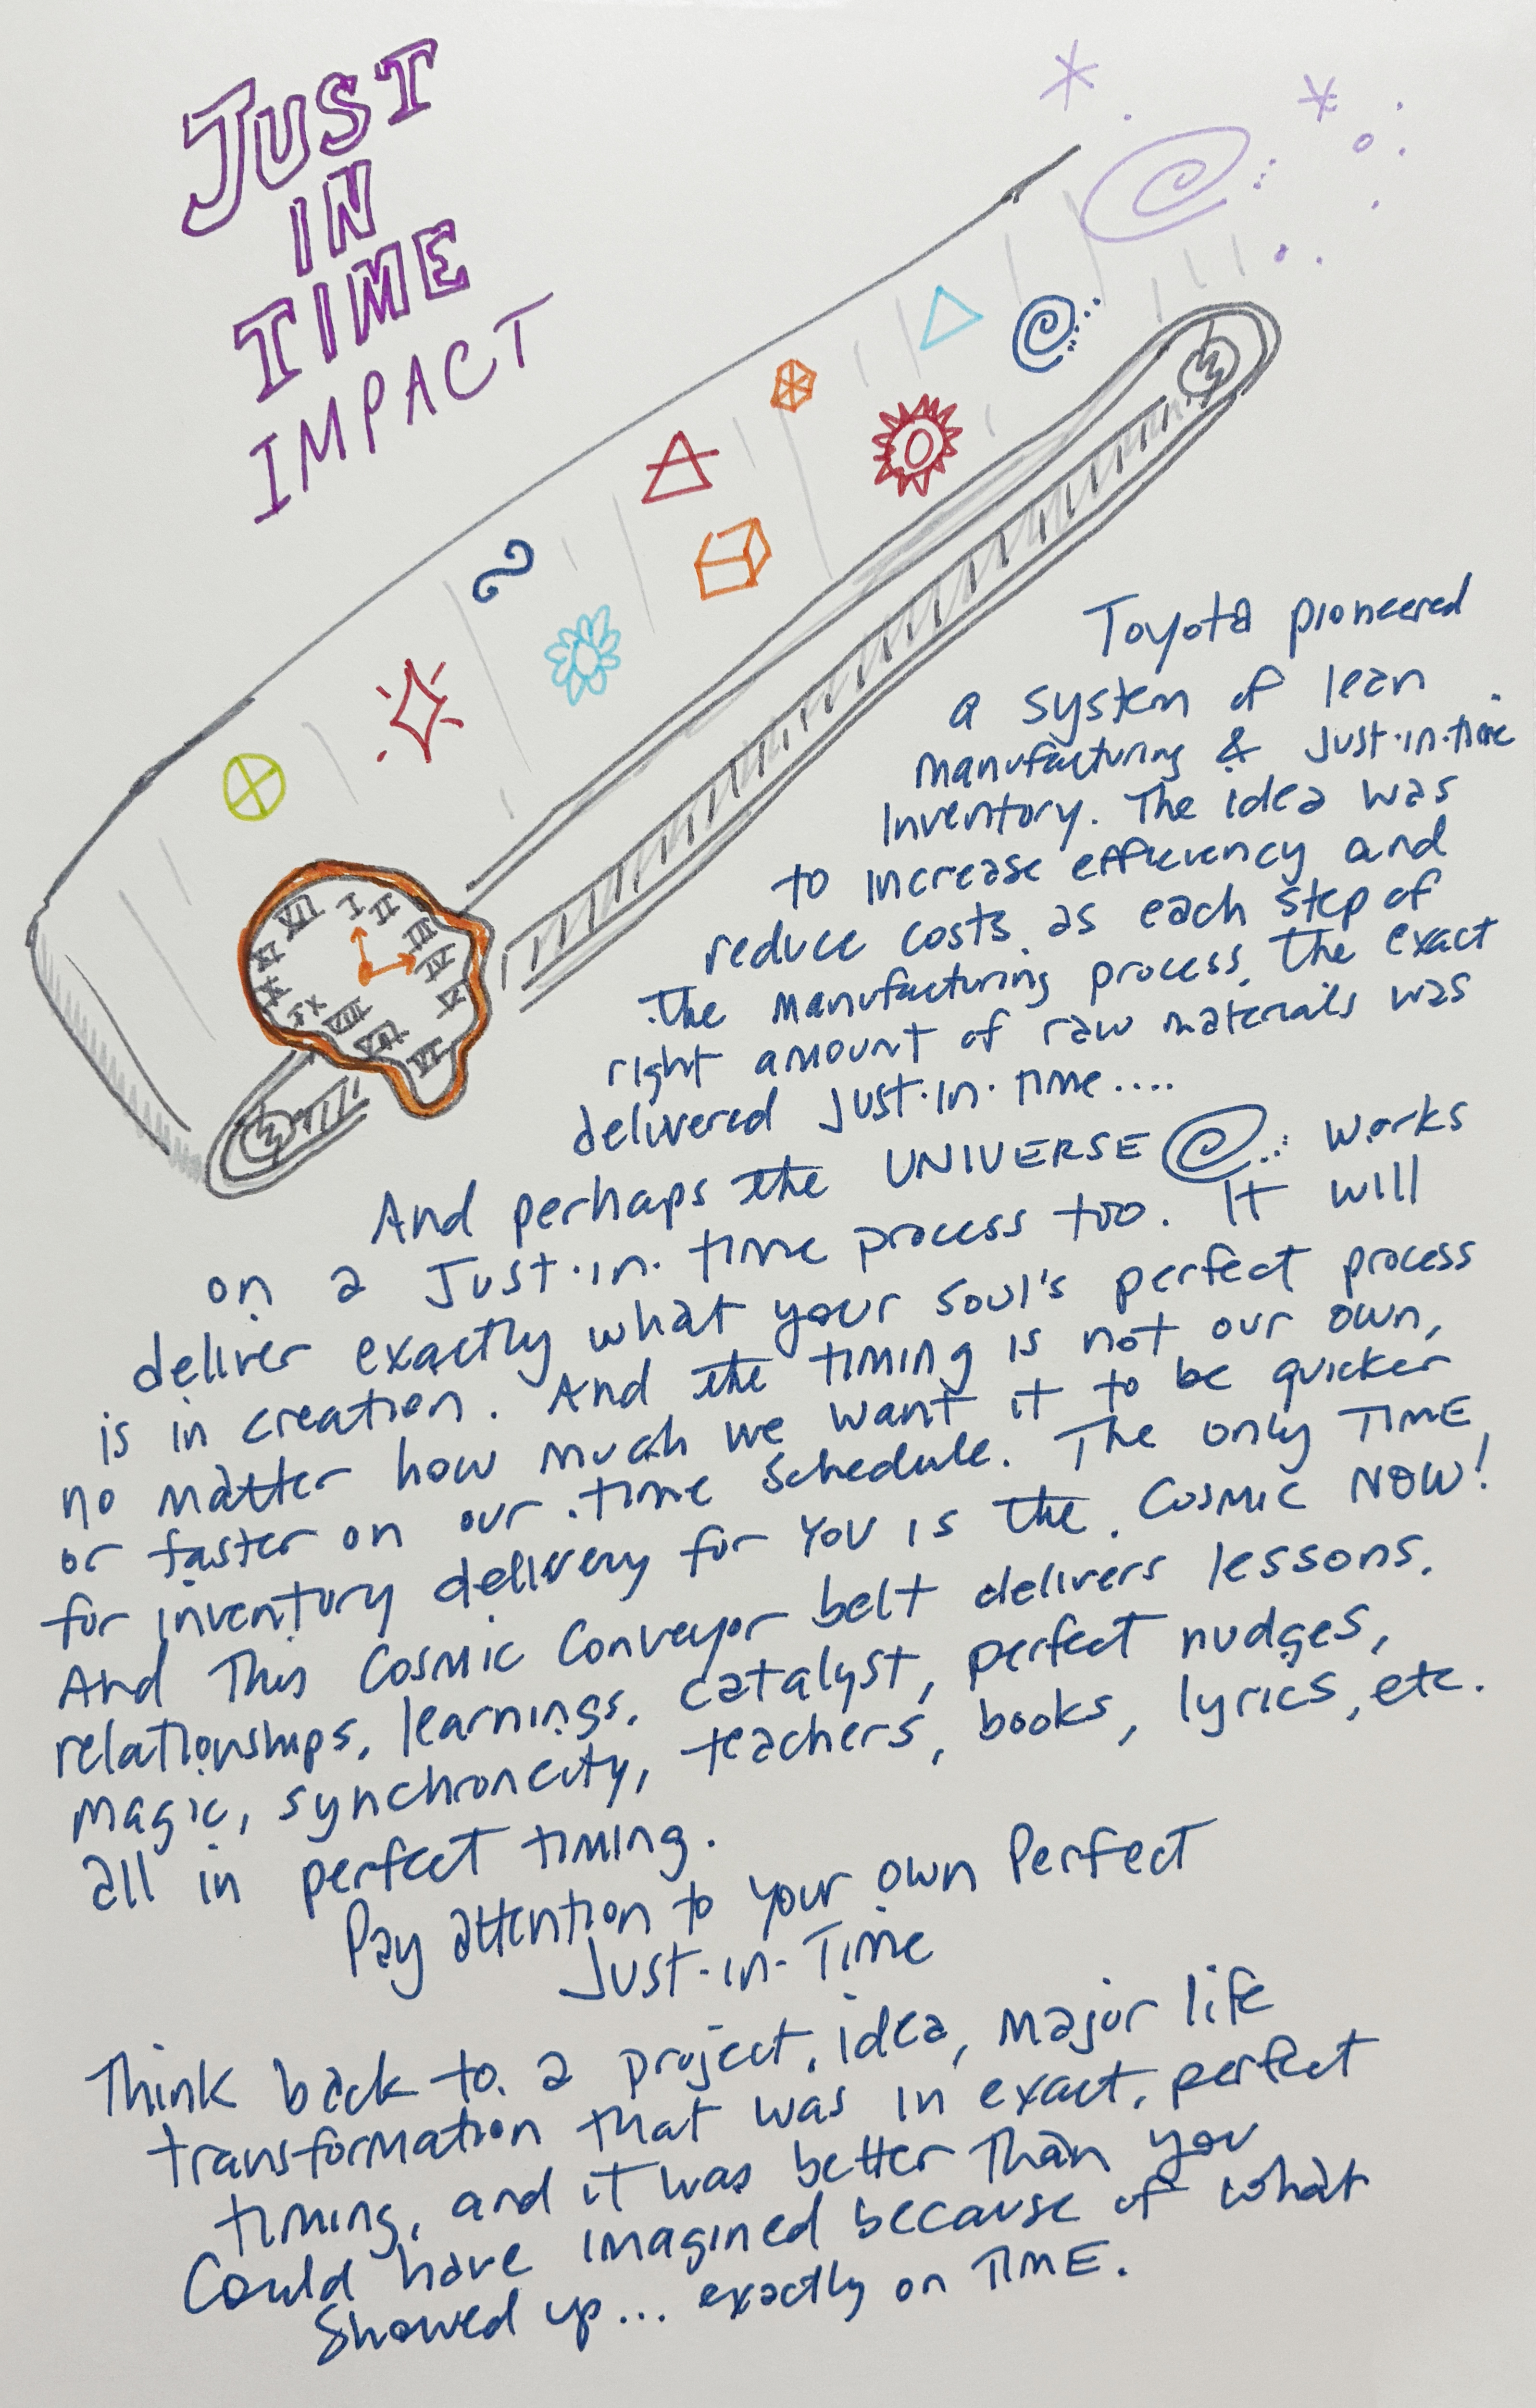 JUST
IN
TIME
IMPACT
Toyota pioneered
a system of lean
manufacturing & Just-in-time
Inventory. The idea was
to increase efficiency and
reduce costs as each step of
the manufacturing process, the exact
right amount of raw materials was
delivered Just-in-time....
And perhaps the UNIVERSE works
on a Just-in-time process too. It will
deliver exactly what your soul's perfect process
is in creation. And the timing is not our own,
no matter how much we want it to be quicker
or faster on our time schedule. The only TIME
for inventory delivery for you is the Cosmic NOW!
And This Cosmic Conveyor belt delivers lessons,
relationships, learnings, catalyst, perfect nudges,
magic, synchroncity, teachers, books, lyrics, etc.
all in perfect timing.
Pay attention to your own Perfect
Just-in-Time
Think back to a project, idea, major life
transformation that was in exact, perfect
timing, and it was better than you
could have imagined because of what
showed up... exactly on TIME.